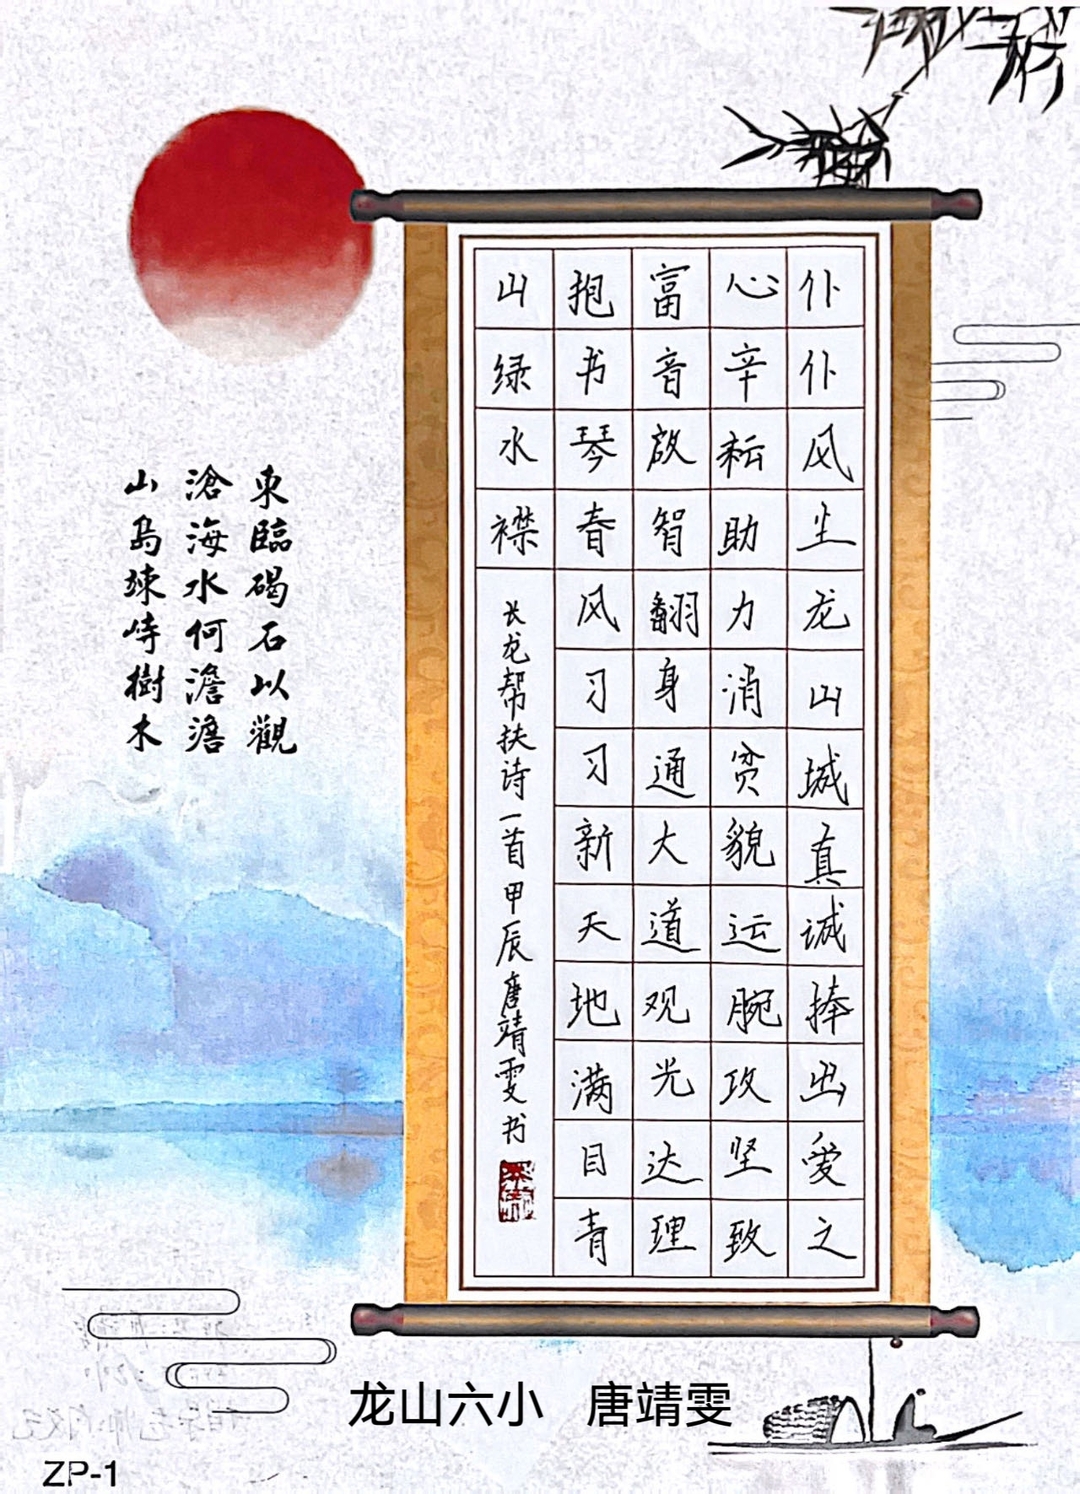 仆仆风尘龙山城真诚捧出爱之
心辛耘助力消贫貌运腕攻坚致
富音啟智翻身通大道观光达理
抱书琴春风习习新天地满目青
山绿水襟
长龙帮扶诗一首甲辰唐靖雯书
東臨碣石以觀
滄海水何澹澹
山島竦峙樹木
龙山六小 唐靖雯
ZP-1